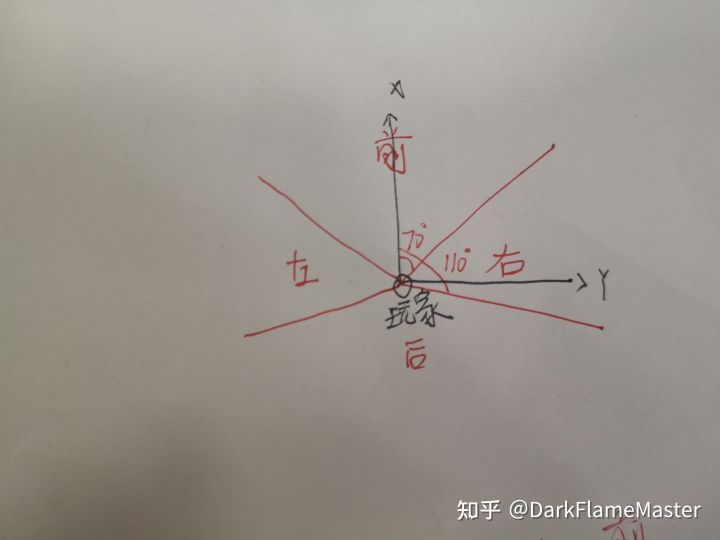 X
前
70°
110°
右
左
Y
玩家
后
知乎 @DarkFlameMaster